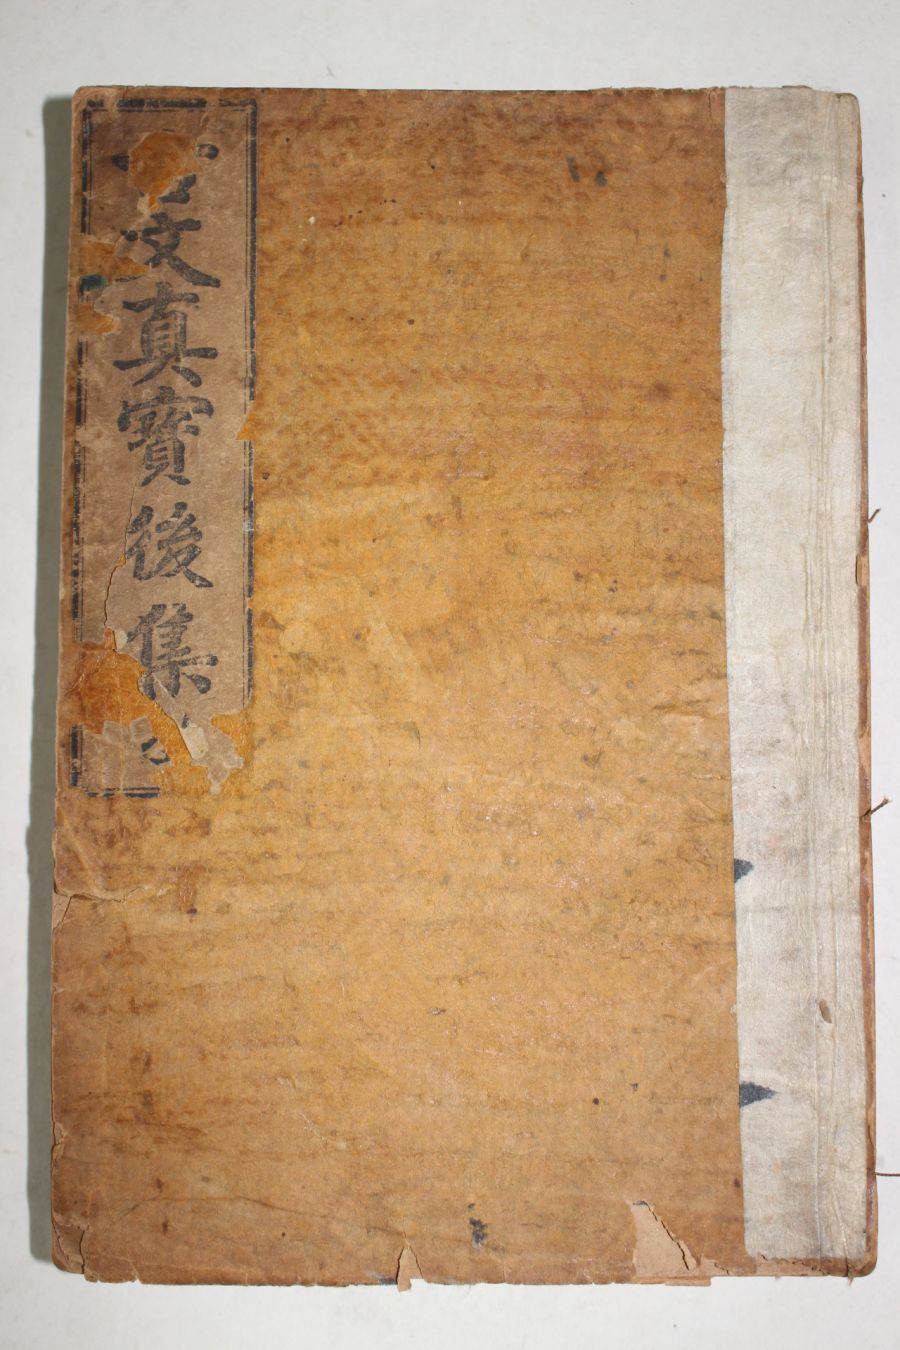 文真寶後集